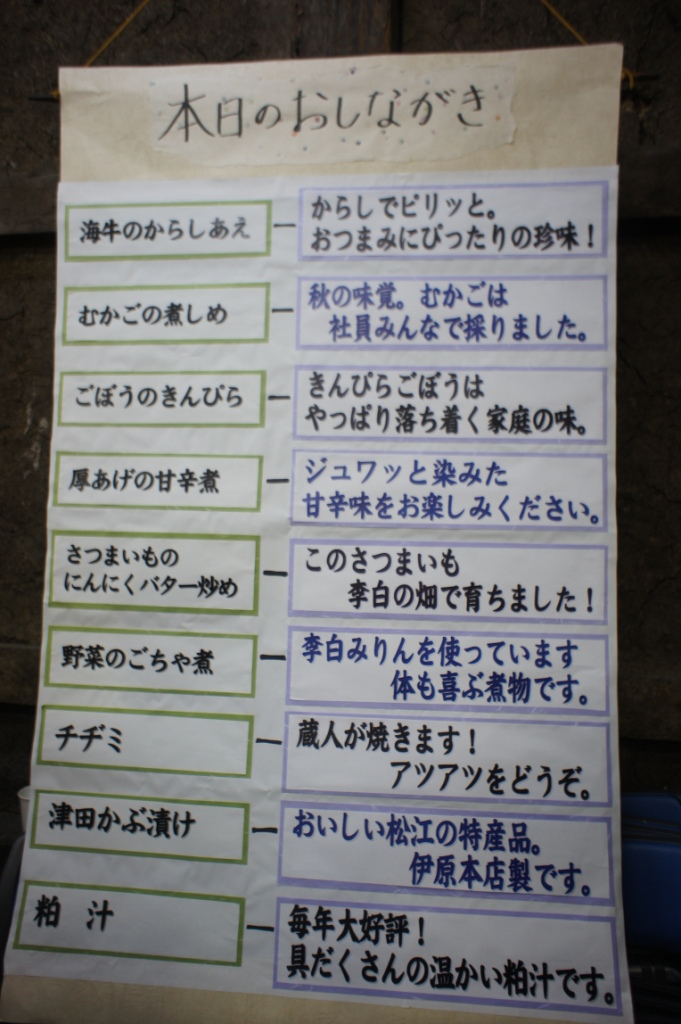 本日のおしながき
海牛のからしあえ
からしでピリッと。
おつまみにぴったりの珍味！
むかごの煮しめ
秋の味覚。むかごは
社員みんなで採りました。
ごぼうのきんぴら
きんぴらごぼうは
やっぱり落ち着く家庭の味。
厚あげの甘辛煮
ジュワッと染みた
甘辛味をお楽しみください。
さつまいもの
にんにくバター炒め
このさつまいも
李白の畑で育ちました！
野菜のごちゃ煮
李白みりんを使っています
体も喜ぶ煮物です。
チヂミ
蔵人が焼きます！
アツアツをどうぞ。
津田かぶ漬け
おいしい松江の特産品。
伊原本店製です。
粕汁
毎年大好評！
具だくさんの温かい粕汁です。